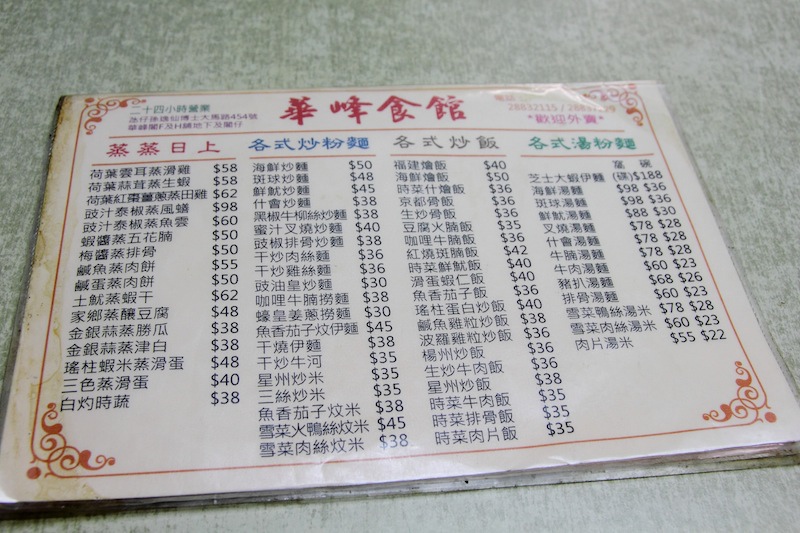 二十四小時營業
氹仔孫逸仙博士大馬路454號
華峰閣F及H舖地下及閣仔
華峰食館
28832115 / 288
*歡迎外賣*
蒸蒸日上
荷葉雲耳蒸滑雞 $58
荷葉蒜茸蒸生蝦 $58
荷葉紅棗薑蔥蒸田雞 $62
豉汁泰椒蒸風鱔 $98
豉汁泰椒蒸魚雲 $60
蝦醬蒸五花腩 $50
梅醬蒸排骨 $50
鹹魚蒸肉餅 $55
鹹蛋蒸肉餅 $50
土魷蒸蝦干 $62
家鄉蒸釀豆腐 $48
金銀蒜蒸勝瓜 $38
金銀蒜蒸津白 $38
瑤柱蝦米蒸滑蛋 $48
三色蒸滑蛋 $40
白灼時蔬 $38
各式炒粉麵
海鮮炒麵 $50
斑球炒麵 $48
鮮魷炒麵 $45
什會炒麵 $38
黑椒牛柳絲炒麵 $38
蜜汁叉燒炒麵 $40
豉椒排骨炒麵 $38
干炒肉絲麵 $36
干炒雞絲麵 $36
豉油皇炒麵 $30
咖哩牛腩撈麵 $38
蠔皇姜蔥撈麵 $30
魚香茄子炆伊麵 $45
干燒伊麵 $38
干炒牛河 $35
星州炒米 $35
三絲炒米 $35
魚香茄子炆米 $38
雪菜火鴨絲炆米 $45
雪菜肉絲炆米 $38
各式炒飯
福建燴飯 $40
海鮮燴飯 $50
時菜什燴飯 $36
京都骨飯 $36
生炒骨飯 $36
豆腐火腩飯 $35
咖哩牛腩飯 $36
紅燒斑腩飯 $42
時菜鮮魷飯 $40
滑蛋蝦仁飯 $40
魚香茄子飯 $36
瑤柱蛋白炒飯 $40
鹹魚雞粒炒飯 $38
波羅雞粒炒飯 $36
楊州炒飯 $36
生炒牛肉飯 $36
星州炒飯 $38
時菜牛肉飯 $35
時菜排骨飯 $35
時菜肉片飯 $35
各式湯粉麵
窩 碗
芝士大蝦伊麵 (碟)$188
海鮮湯麵 $98 $36
斑球湯麵 $98 $36
鮮魷湯麵 $88 $30
叉燒湯麵 $78 $28
什會湯麵 $78 $28
牛腩湯麵 $78 $28
牛肉湯麵 $60 $23
豬扒湯麵 $68 $26
排骨湯麵 $60 $23
雪菜鴨絲湯米 $78 $28
雪菜肉絲湯米 $60 $23
肉片湯米 $55 $22